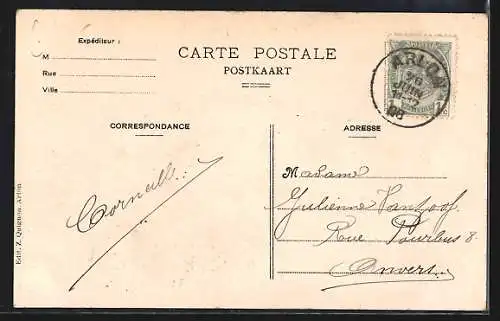 Expéditeur :
M
Rue
Ville
CARTE POSTALE
POSTKAART
ARLON
JUIN
08
CORRESPONDANCE
ADRESSE
Corneille
Madame
Julienne Vanhoof
Rue Pourbus 8
Anvers
Edit. Z. Quignon, Arlon